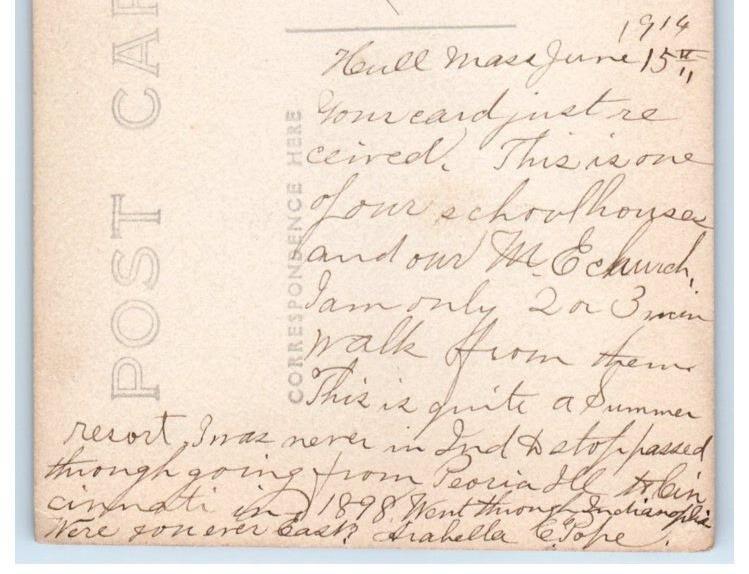 POST CA
CORRESPONDENCE HERE
1914
Hull Mass June 15th
Your card just re
ceived. This is one
of our schoolhouses
and our M. E church.
I am only 2 or 3 min
walk from them.
This is quite a Summer
resort. I was never in Ind to stop passed
through going from Peoria Ill to Cin
cinnati in 1898. Went through Indianoplis
Were you ever East? Arabella E. Pope.